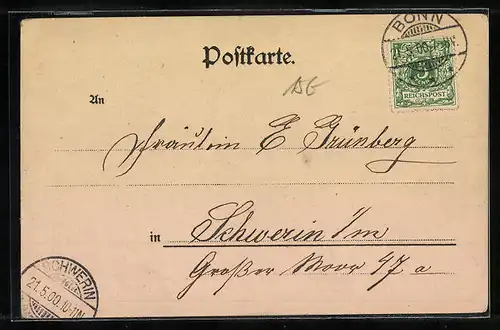 BONN
Postkarte.
REICHSPOST
An
Fräulein E Grünberg
in Schwerin i/m
Großer Moor 47 a
SCHWERIN
21.5.00.